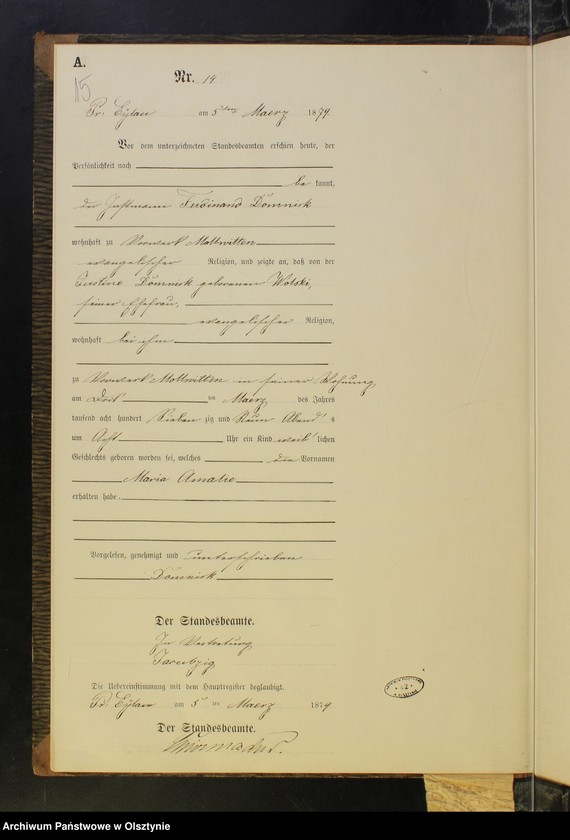 A.
15
Nr. 14.
Pr. Eylau am 5ten Maerz 1879
Vor dem unterzeichneten Standesbeamten erschien heute, der
Persönlichkeit nach
be kannt,
der Instmann Ferdinand Dömnick
wohnhaft zu Vorwerk Mollwitten
evangelischer Religion, und zeigte an, daß von der
Justine Dömnick geborenen Wolski,
seiner Ehefrau,
evangelischer Religion,
wohnhaft bei ihm
zu Vorwerk Mollwitten in seiner Wohnung
am ten Maerz des Jahres
tausend acht hundert sieben zig und Neun Abend s
um Acht Uhr ein Kind weib lichen
Geschlechts geboren worden sei, welches die Vornamen
Maria Amalie
erhalten habe.
Vorgelesen, genehmigt und unterschrieben
Dömnick
Der Standesbeamte.
In Vertretung
Die Uebereinstimmung mit dem Hauptregister beglaubigt.
Pr. Eylau am 5ten Maerz 1879
Der Standesbeamte.
Archiwum Państwowe w Olsztynie